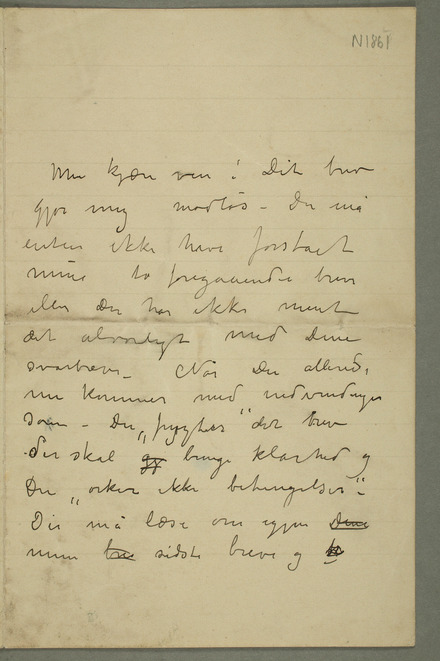 N1861
Min kjære ven! Dit brev
gjør mig modløs – Du må
enten ikke have forstået
mine to foregaaende brev
eller du har ikke ment
det alvorligt med dine
svarbreve – Når Du allerede
nu kommer med indvendinger
som – Du „frygter" det brev
der skal bringe klarhed og
Du „orker ikke betingelser" –
Du må læse om igjen Dine
mine bre sidste breve og